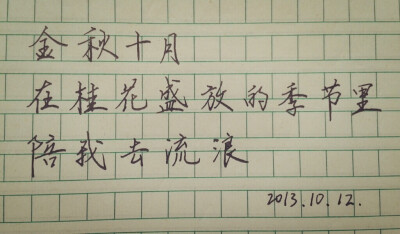 金秋十月
在桂花盛放的季节里
陪我去流浪
2013.10.12.